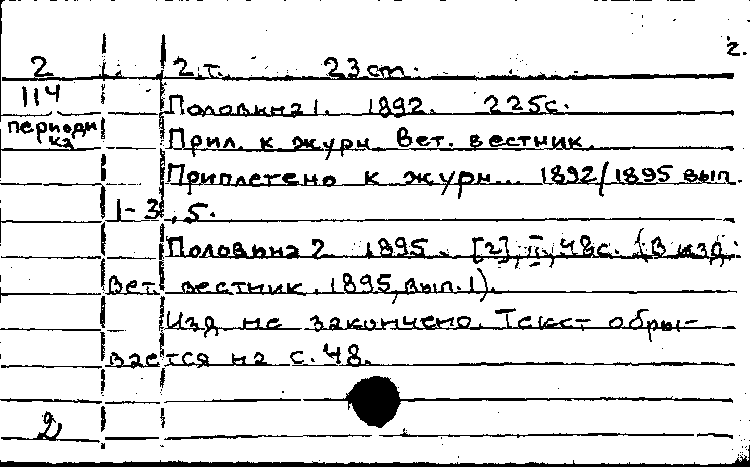 2.
2 2 т. 23 ст.
114 Половина 1. 1892. 225с.
периоди
ка Прил. к журн. Вет. вестник.
Приплетено к журн... 1892/1895 вып.
1-3, 5.
Половина 2. 1895. [2], II, 48с. (В изд.
Вет. вестник. 1895, вып. 1).
Изд. не закончено. Текст обры-
вается на с. 48.
2